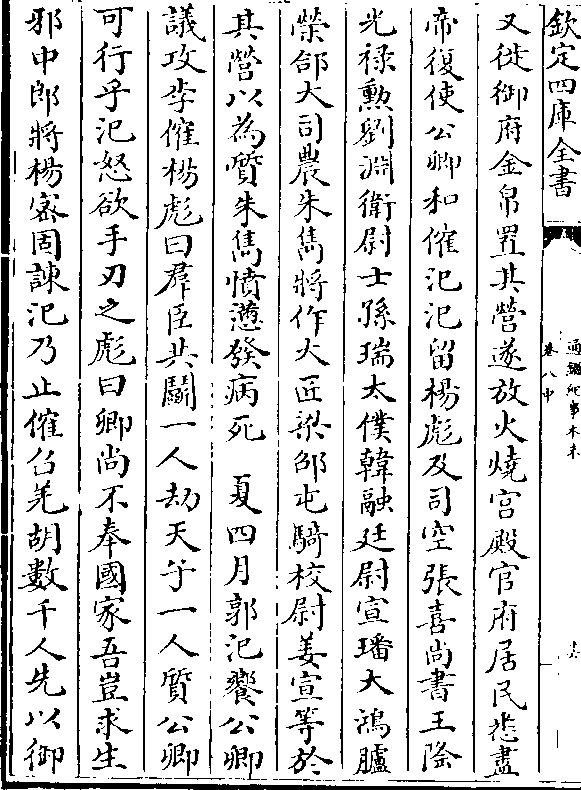 欽定四庫全書
通鑑紀事本末
卷八中
又徙御府金帛置其營遂放火燒宮殿官府居民悉盡
帝復使公卿和傕汜汜留楊彪及司空張喜尚書王隆
光禄勲劉淵衛尉士孫瑞太僕韓融廷尉宣璠大鴻臚
榮郃大司農朱雋將作大匠梁邵屯騎校尉姜宣等於
其營以為質朱雋憤懣發病死 夏四月郭汜饗公卿
議攻李傕楊彪曰羣臣共鬭一人劫天子一人質公卿
可行乎汜怒欲手刃之彪曰卿尚不奉國家吾豈求生
邪中郎將楊宻固諫汜乃止傕召羌胡數千人先以御